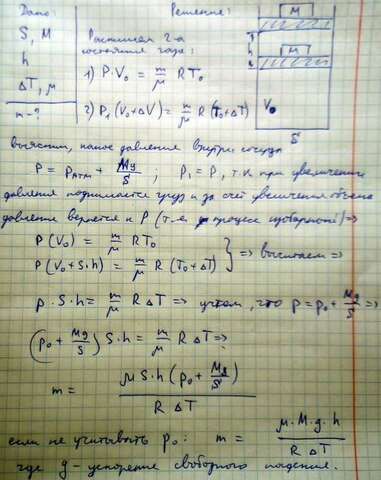 Дано:
S, M
h
ΔT, μ
m - ?
Решение:
Распишем 2-а
состояния газа:
1) P·V₀ = m/μ RT₀
2) P₁(V₀+ΔV) = m/μ R(T₀+ΔT)
M
h
M
V₀
S
выясним, какое давление внутри сосуда
P = Pатм + Mg/S ; P₁ = P, т.к. при увеличении
давления поднимается груз и за счёт увеличения объема
давление вернется к P (т.е. процесс изобарный) =>
P(V₀) = m/μ RT₀
P(V₀+S·h) = m/μ R(T₀+ΔT) } => вычитаем =>
p·S·h = m/μ RΔT => учтем, что p = p₀ + Mg/S =>
(p₀ + Mg/S) S·h = m/μ RΔT =>
m = μS·h(p₀ + Mg/S) / RΔT
если не учитывать p₀: m = μ·M·g·h / RΔT
где g - ускорение свободного падения.